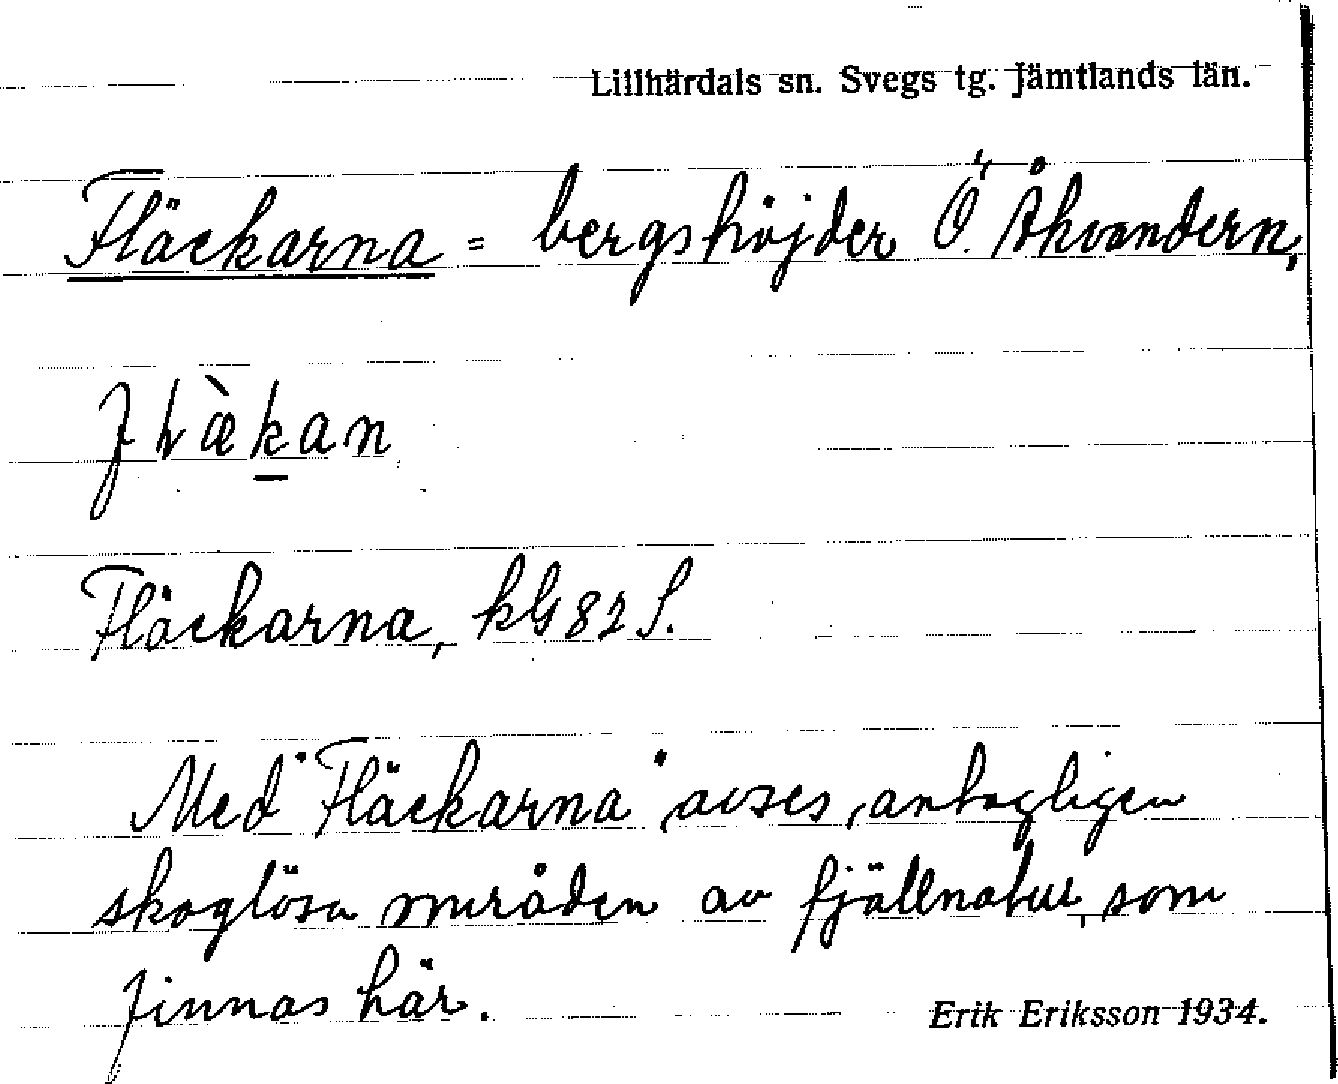 Lillhärdals sn. Svegs tg. Jämtlands län.
Fläckarna = bergshöjder Ö. Åkvandern,
flæ̀kan
Fläckarna, kG 82 S.
Med "Fläckarna" avses antagligen
skoglösa områden av fjällnatur, som
finnas här.
Erik Eriksson 1934.